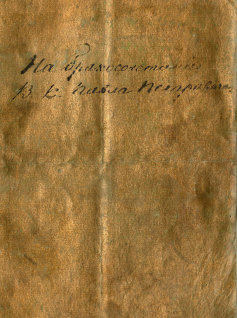 На бракосочетание
В. К. Павла Петровича